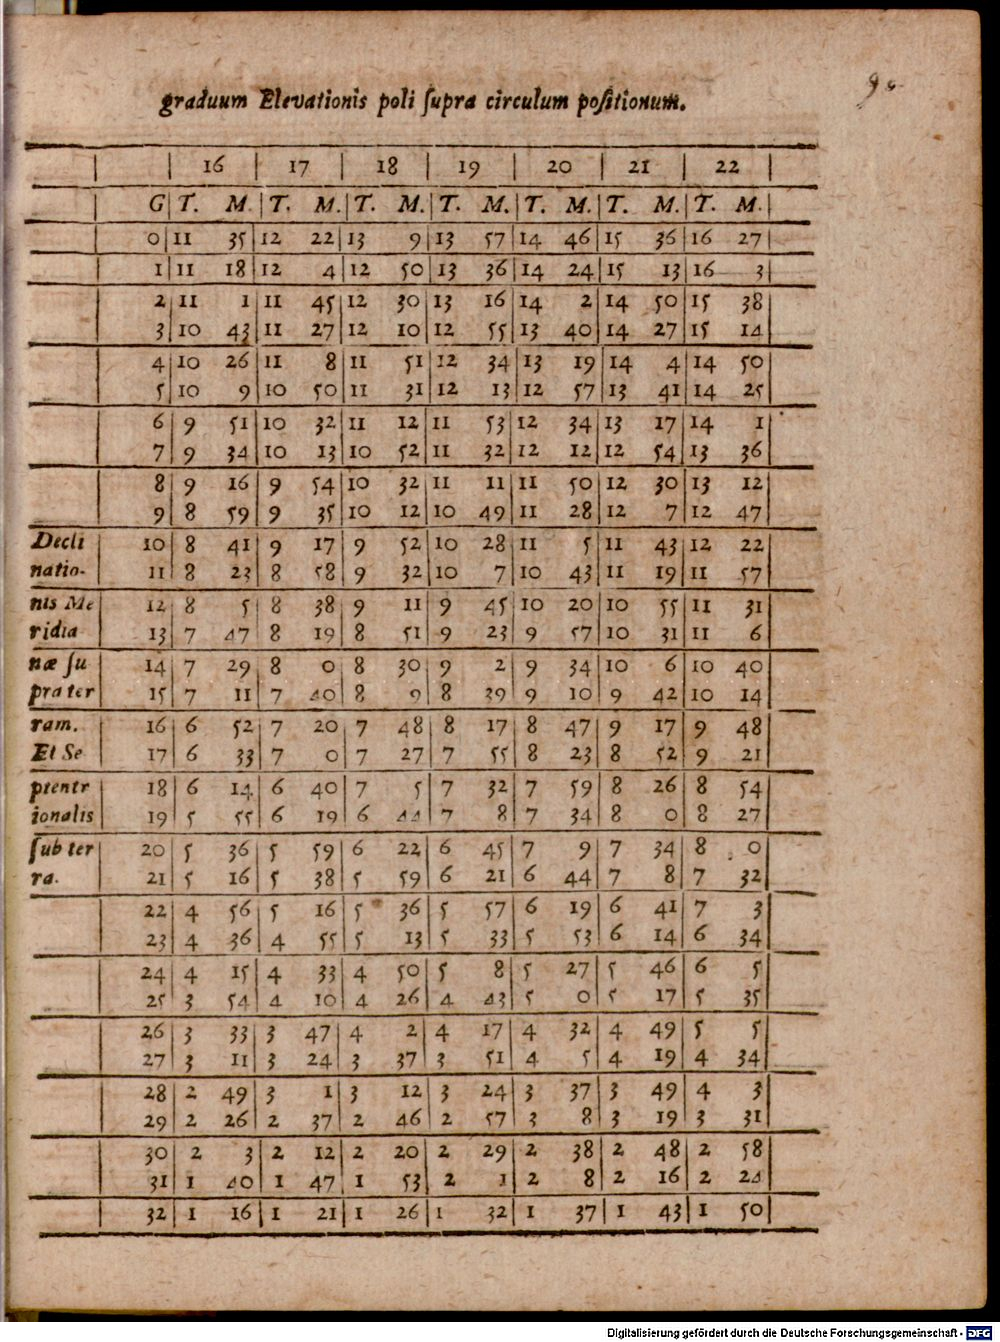 90
graduum Elevationis poli ſupra circulum poſitionum.
16 17 18 19 20 21 22
G T. M. T. M. T. M. T. M. T. M. T. M. T. M.
0 11 35 12 22 13 9 13 57 14 46 15 36 16 27
1 11 18 12 4 12 50 13 36 14 24 15 13 16 3
2 11 1 11 45 12 30 13 16 14 2 14 50 15 38
3 10 43 11 27 12 10 12 55 13 40 14 27 15 14
4 10 26 11 8 11 51 12 34 13 19 14 4 14 50
5 10 9 10 50 11 31 12 13 12 57 13 41 14 25
6 9 51 10 32 11 12 11 53 12 34 13 17 14 1
7 9 34 10 13 10 52 11 32 12 12 12 54 13 36
8 9 16 9 54 10 32 11 11 11 50 12 30 13 12
9 8 59 9 35 10 12 10 49 11 28 12 7 12 47
Decli 10 8 41 9 17 9 52 10 28 11 5 11 43 12 22
natio- 11 8 23 8 58 9 32 10 7 10 43 11 19 11 57
nis Me 12 8 5 8 38 9 11 9 45 10 20 10 55 11 31
ridia 13 7 47 8 19 8 51 9 23 9 57 10 31 11 6
næ ſu 14 7 29 8 0 8 30 9 2 9 34 10 6 10 40
pra ter 15 7 11 7 40 8 9 8 39 9 10 9 42 10 14
ram. 16 6 52 7 20 7 48 8 17 8 47 9 17 9 48
Et Se 17 6 33 7 0 7 27 7 55 8 23 8 52 9 21
ptentr 18 6 14 6 40 7 5 7 32 7 59 8 26 8 54
ionalis 19 5 55 6 19 6 44 7 8 7 34 8 0 8 27
ſub ter 20 5 36 5 59 6 22 6 45 7 9 7 34 8 0
ra. 21 5 16 5 38 5 59 6 21 6 44 7 8 7 32
22 4 56 5 16 5 36 5 57 6 19 6 41 7 3
23 4 36 4 55 5 13 5 33 5 53 6 14 6 34
24 4 15 4 33 4 50 5 8 5 27 5 46 6 5
25 3 54 4 10 4 26 4 43 5 0 5 17 5 35
26 3 33 3 47 4 2 4 17 4 32 4 49 5 5
27 3 11 3 24 3 37 3 51 4 5 4 19 4 34
28 2 49 3 1 3 12 3 24 3 37 3 49 4 3
29 2 26 2 37 2 46 2 57 3 8 3 19 3 31
30 2 3 2 12 2 20 2 29 2 38 2 48 2 58
31 1 40 1 47 1 53 2 1 2 8 2 16 2 24
32 1 16 1 21 1 26 1 32 1 37 1 43 1 50
Digitalisierung gefördert durch die Deutsche Forschungsgemeinschaft - DFG